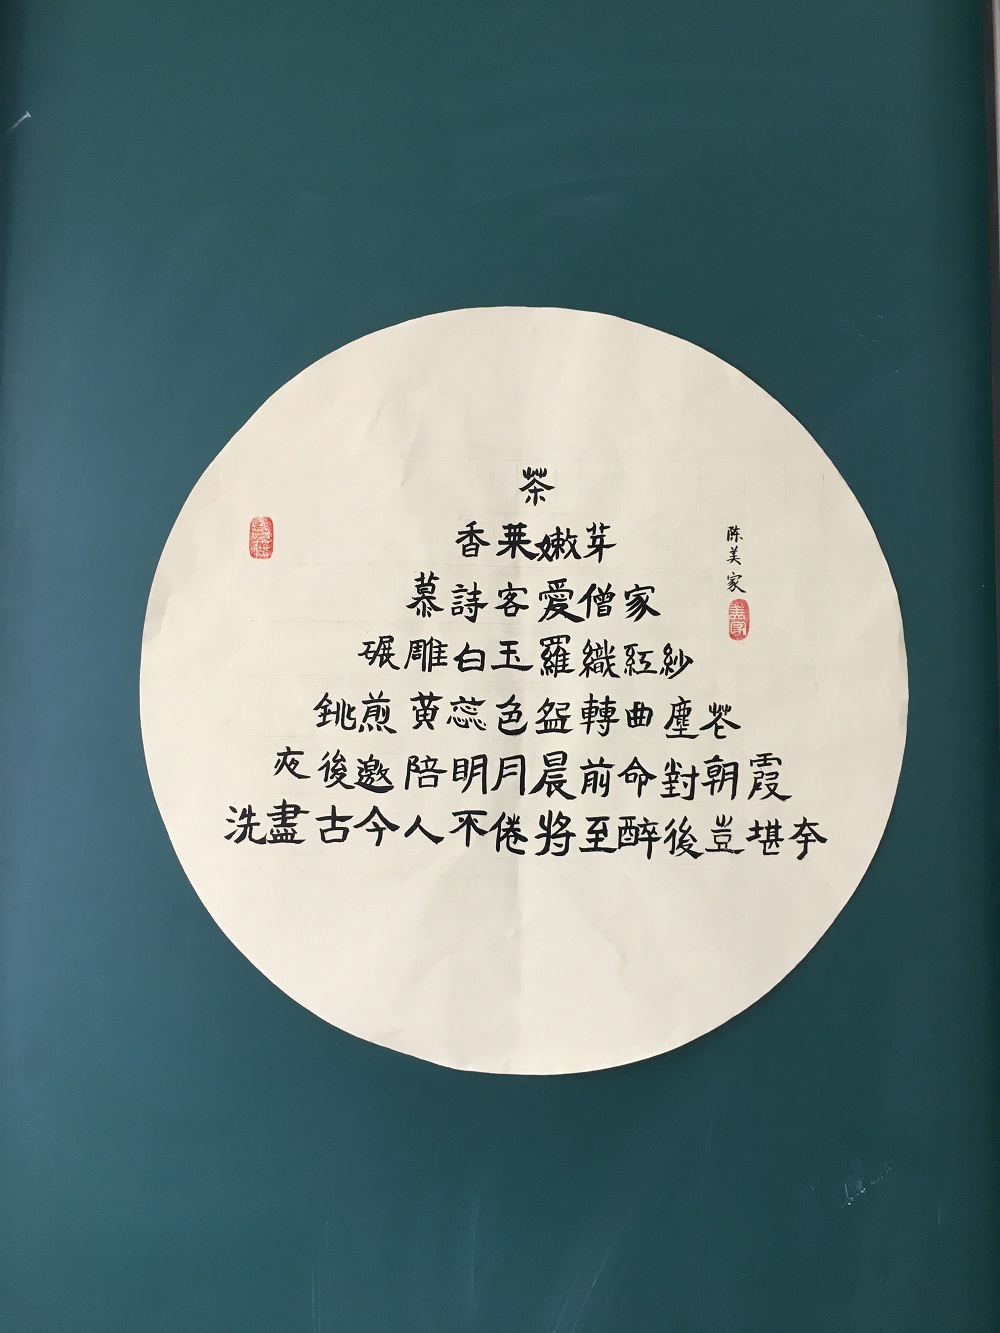 茶
香葉嫩芽
慕詩客愛僧家
碾雕白玉羅織紅紗
銚煎黄蕊色盌轉曲塵花
夜後邀陪明月晨前命對朝霞
洗盡古今人不倦將至醉後豈堪夸
陈美家